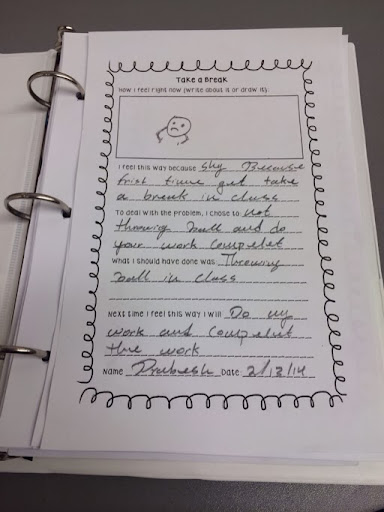 Take a Break
How I feel right now (write about it or draw it):
I feel this way because shy Because
frist time get take
a break in class
To deal with the problem, I chose to not
throwing ball and do
your work complet
What I should have done was Throwing
ball in class
Next time I feel this way I will Do my
work and complet
the work
Name Prabesh Date: 2/13/14